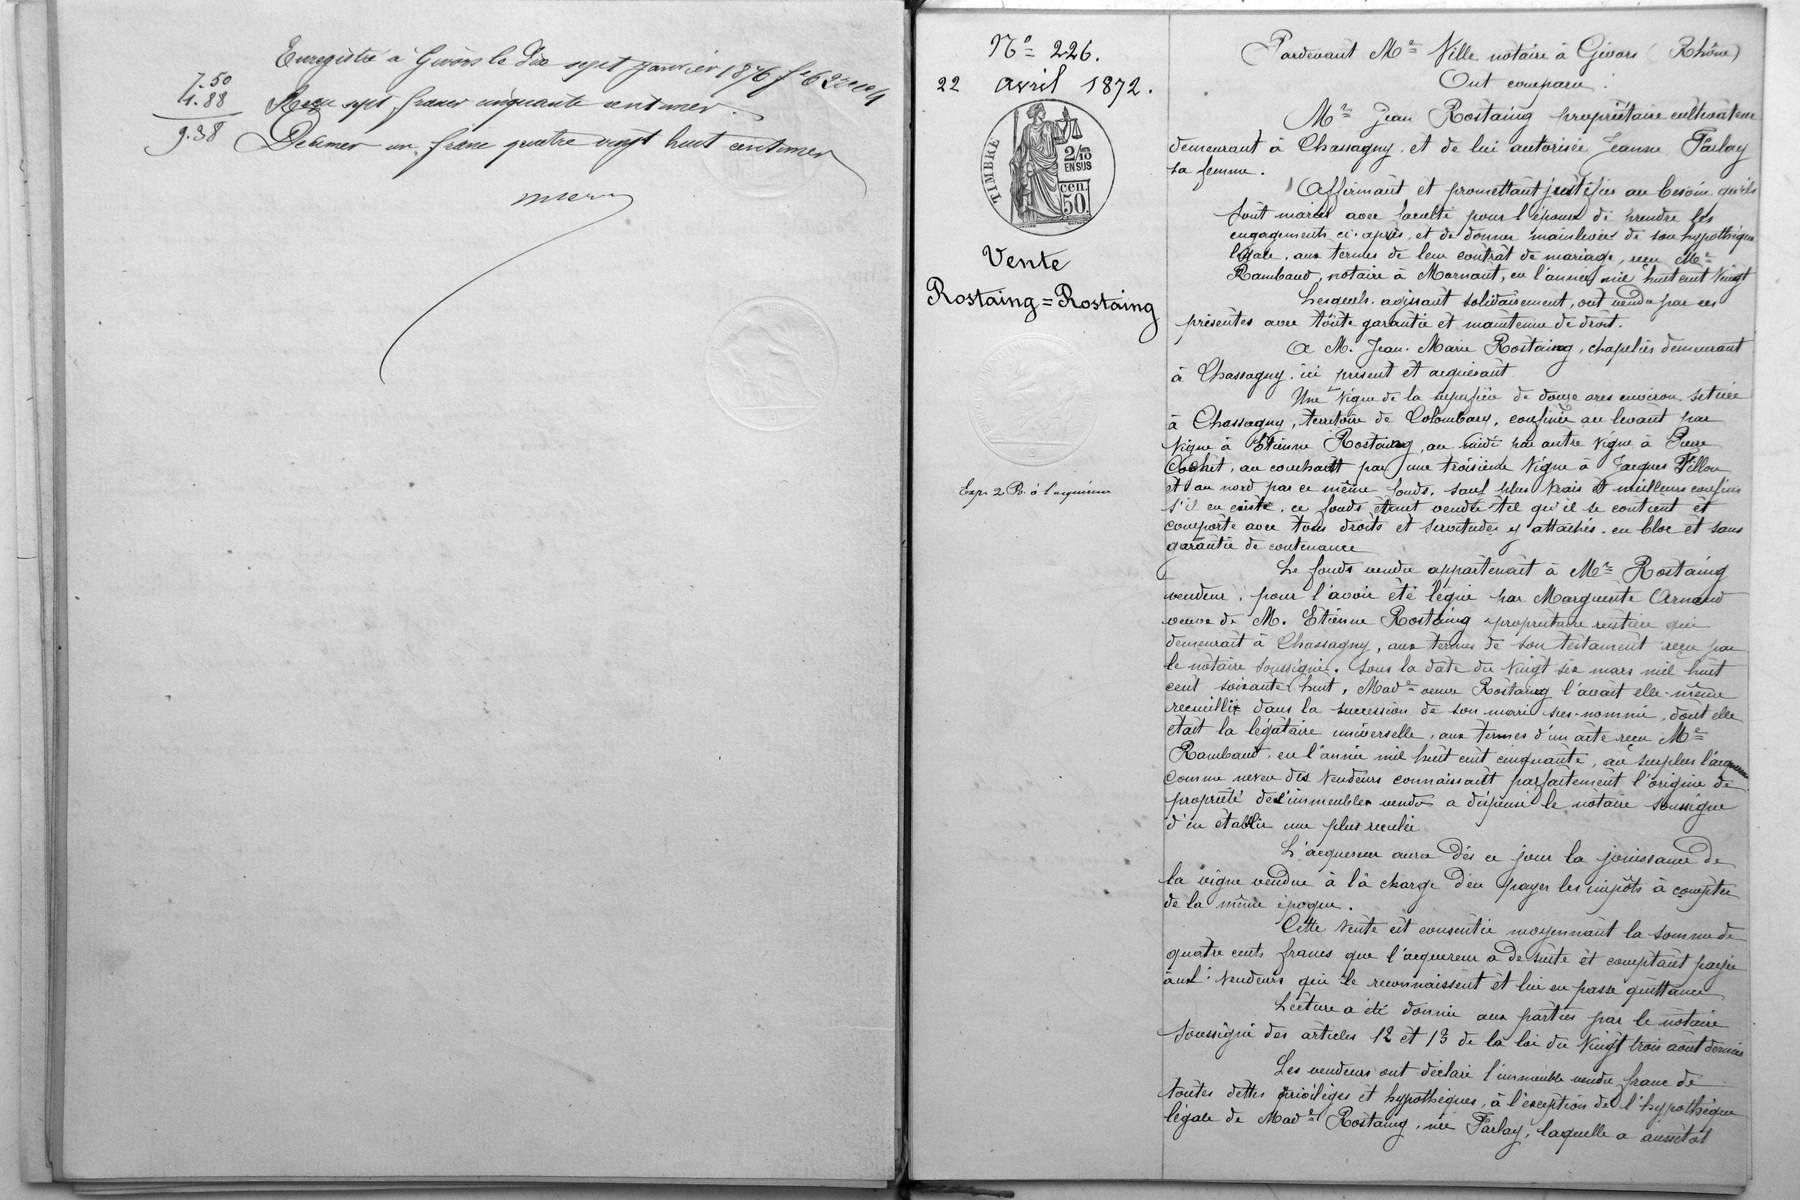 Enregistré à Givors le Dix sept janvier 1876 f° 62
7.50
1.88
9.38
Reçu sept francs cinquante centimes.
Décimes un franc quatre vingt huit centimes
N° 226.
22 avril 1872.
TIMBRE
2/10
EN SUS
cen.
50.
Vente
Rostaing = Rostaing
Exp. 2 R. à l'acquéreur
Pardevant Me Ville notaire à Givors (Rhône)
Ont comparu
Mr Jean Rostaing propriétaire cultivateur
demeurant à Chassagny, et de lui autorisée Jeanne Farlay
sa femme.
Affirmant et promettant justifier au besoin qu'ils
sont mariés avec faculté pour l'épouse de prendre les
engagements ci-après, et de donner mainlevée de son hypothèque
légale, aux termes de leur contrat de mariage, reçu Me
Rambaud, notaire à Mornant, en l'année mil huit cent vingt
Lesquels, agissant solidairement, ont vendu par ces
présentes avec toute garantie et maintenue de droit.
A M. Jean-Marie Rostaing, chapelier demeurant
à Chassagny, ici présent et acquérant
Une vigne de la superficie de douze ares environ située
à Chassagny, territoire de Colombary, confinée au levant par
vigne à Etienne Rostaing, au midi par autre vigne à Pierre
Cochet, au couchant par une troisième vigne à Jacques Fillon
et au nord par ce même fonds, sauf plus vrais et meilleurs confins
s'il en existe, ce fonds étant vendu tel qu'il se contient et
comporte avec tous droits et servitudes y attachés, en bloc et sans
garantie de contenance
Le fonds vendu appartenait à Mr Rostaing
vendeur, pour l'avoir été légué par Marguerite Arnaud
veuve de M. Etienne Rostaing propriétaire rentière qui
demeurait à Chassagny, aux termes de son testament reçu par
le notaire soussigné, sous la date du vingt six mars mil huit
cent soixante huit, Made veuve Rostaing l'avait elle-même
recueillie dans la succession de son mari sus-nommé, dont elle
était la légataire universelle, aux termes d'un acte reçu Me
Rambaud, en l'année mil huit cent cinquante, au surplus l'acquéreur
comme neveu des vendeurs connaissant parfaitement l'origine de
propriété de l'immeuble vendu a dispensé le notaire soussigné
d'en établir une plus reculée
L'acquéreur aura dès ce jour la jouissance de
la vigne vendue à la charge d'en payer les impôts à compter
de la même époque.
Cette vente est consentie moyennant la somme de
quatre cents francs que l'acquéreur a de suite et comptant payée
aux vendeurs qui le reconnaissent et lui en passe quittance
Lecture a été donnée aux parties par le notaire
soussigné des articles 12 et 13 de la loi du vingt trois août dernier
Les vendeurs ont déclaré l'immeuble vendu franc de
toutes dettes privilèges et hypothèques, à l'exception de l'hypothèque
légale de Made Rostaing, née Farlay, laquelle a aussitôt